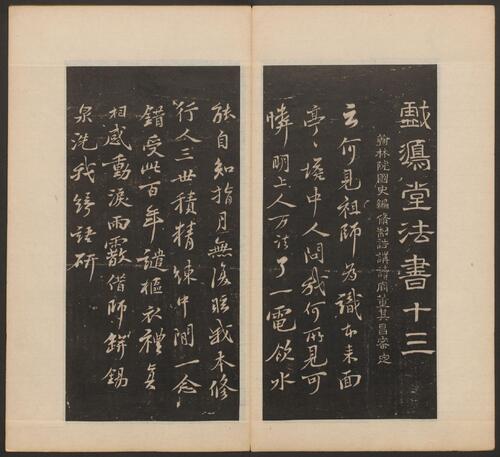 戲鴻堂法書十三
翰林院國史編修制誥講讀官董其昌審定
云何見祖師為識本來面
亭〻墖中人問我何所見可
憐明上人万法了一電飲水
能自知指月無復眩我本修
行人三世積精練中間一念
錯受此百年譴摳衣禮真
相感動淚雨霰借師鉼錫
泉洗我綺語研